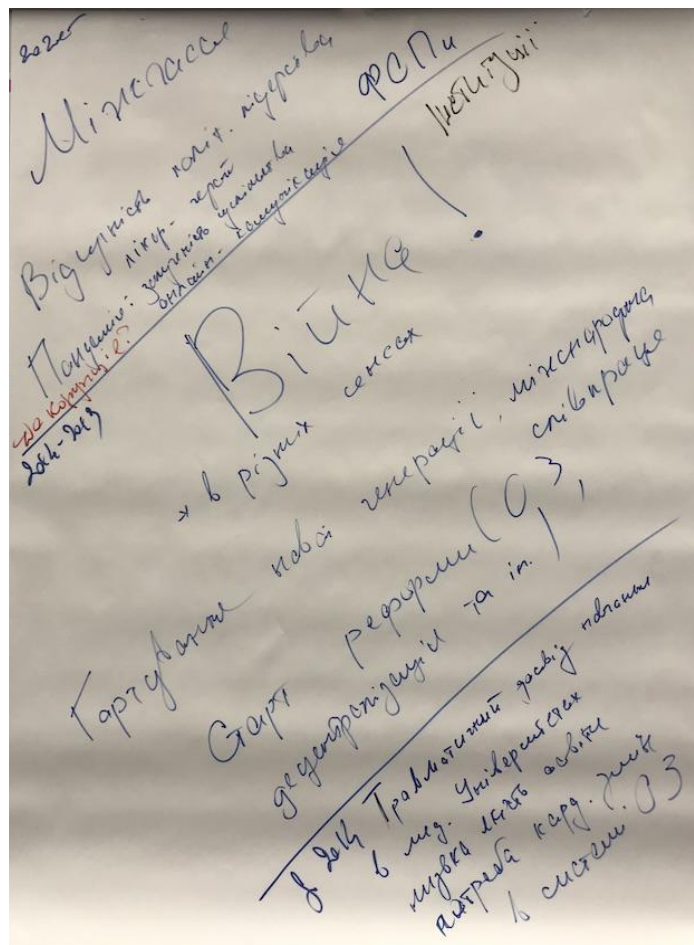 2020
Міжчасся
ФСПи
Інституції
Відсутність політ. лідерства
лікар - герой
Пандемія: залученість суспільства
онлайн - комунікація
до корупції?
2014-2019
Війна!
* в різних сенсах
Гартування нової генерації, міжнародна
співпраця
Старт реформи (ОЗ,
децентралізації та ін.)
до 2014 Травматичний досвід навчання
в мед. університетах
низька якість освіти
потреба кард. змін
в системі ОЗ